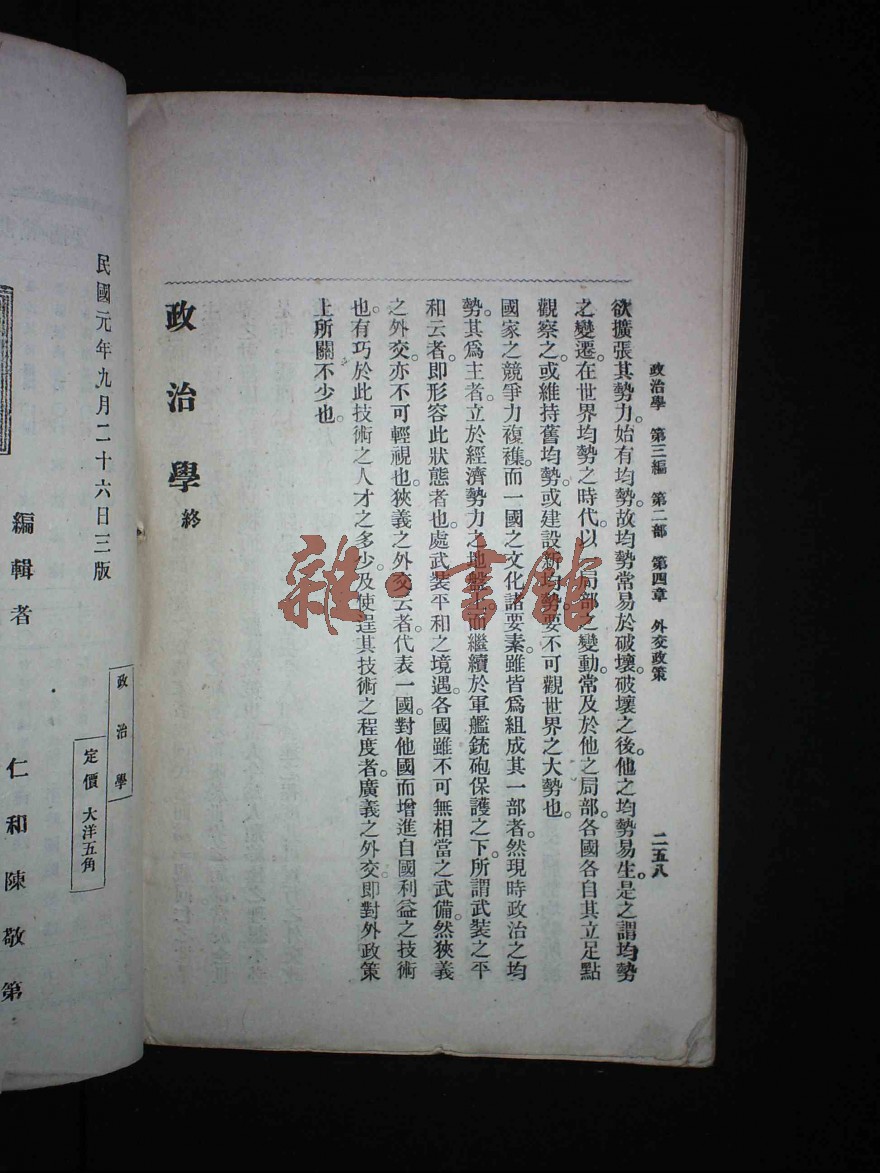 政治學　第三編　第二部　第四章　外交政策　二五八
欲擴張其勢力。始有均勢。故均勢常易於破壞。破壞之後。他之均勢易生。是之謂均勢
之變遷。在世界均勢之時代。以一局部之變動。常及於他之局部。各國各自其立足點
觀察之。或維持舊均勢。或建設新均勢。要不可觀世界之大勢也。
國家之競爭力複襍。而一國之文化諸要素。雖皆爲組成其一部者。然現時政治之均
勢。其爲主者。立於經濟勢力之地盤上。而繼續於軍艦銃砲保護之下。所謂武裝之平
和云者。即形容此狀態者也。處武裝平和之境遇。各國雖不可無相當之武備。然狹義
之外交。亦不可輕視也。狹義之外交云者。代表一國。對他國而增進自國利益之技術
也。有巧於此技術之人才之多少。及使逞其技術之程度者。廣義之外交。即對外政策
上所關不少也。
政治學終
民國元年九月二十六日三版
政治學
定價　大洋五角
編輯者　仁和陳敬第
雜·書館